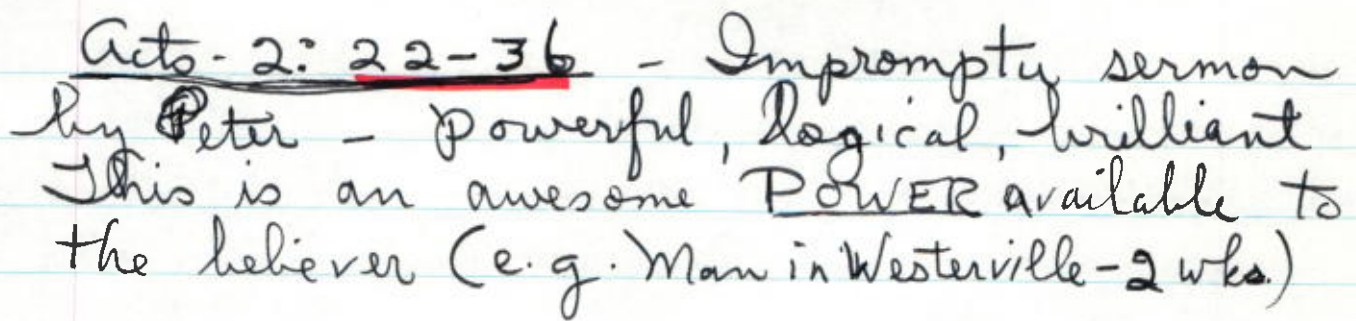 Acts - 2: 22-36 - Impromptu sermon
by Peter - powerful, logical, brilliant
This is an awesome POWER available to
the believer (e.g. Man in Westerville - 2 wks.)